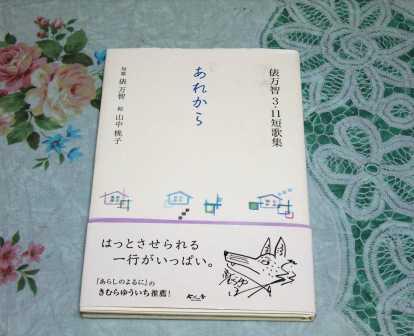 俵万智3・11短歌集
あれから
短歌 俵万智 絵 山中桃子
はっとさせられる
一行がいっぱい。
『あらしのよるに』の
きむらゆういち推薦!